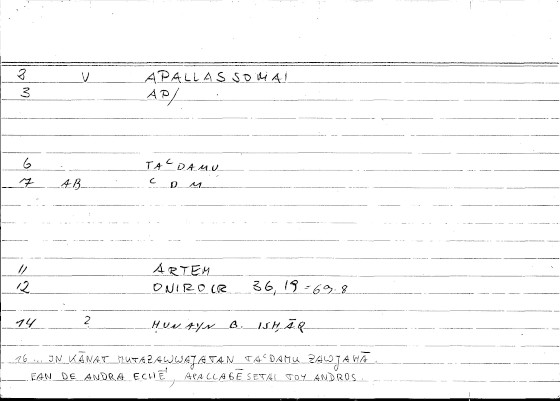 8 V APALLASSOMAI
3 AP/
6 TAᶜDAMU
7 AB ᶜ D M
11 ARTEM
12 ONIROCR 36,19 = 69.8
14 2 ḤUNAYN B. ISḤĀQ
16 .. IN KĀNAT MUTAZAWWAJATAN TAᶜDAMU ZAWJAHĀ
EAN DE ANDRA ECHĒ, APALLAGĒSETAI TOY ANDROS.